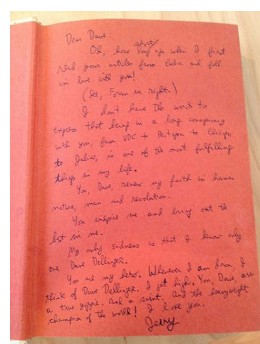 Dear Dave,
Oh, how long ago when I first
read your articles from Cuba and fell
in love with you!
(See, Erica is right)
I don't have the words to
express that being in a long conspiracy
with you, from VDC to Pentagon to Chicago
to Julius, is one of the most fulfilling
things in my life.
You, Dave, renew my faith in human
nature, man and revolution.
You inspire me and bring out the
best in me.
My only sadness is that I know only
one Dave Dellinger.
You are my hero. Whenever I am down I
think of Dave Dellinger. I get high. You, Dave, are
a true yippie. And a saint. And the heavyweight
champion of the world! I love you.
Jerry